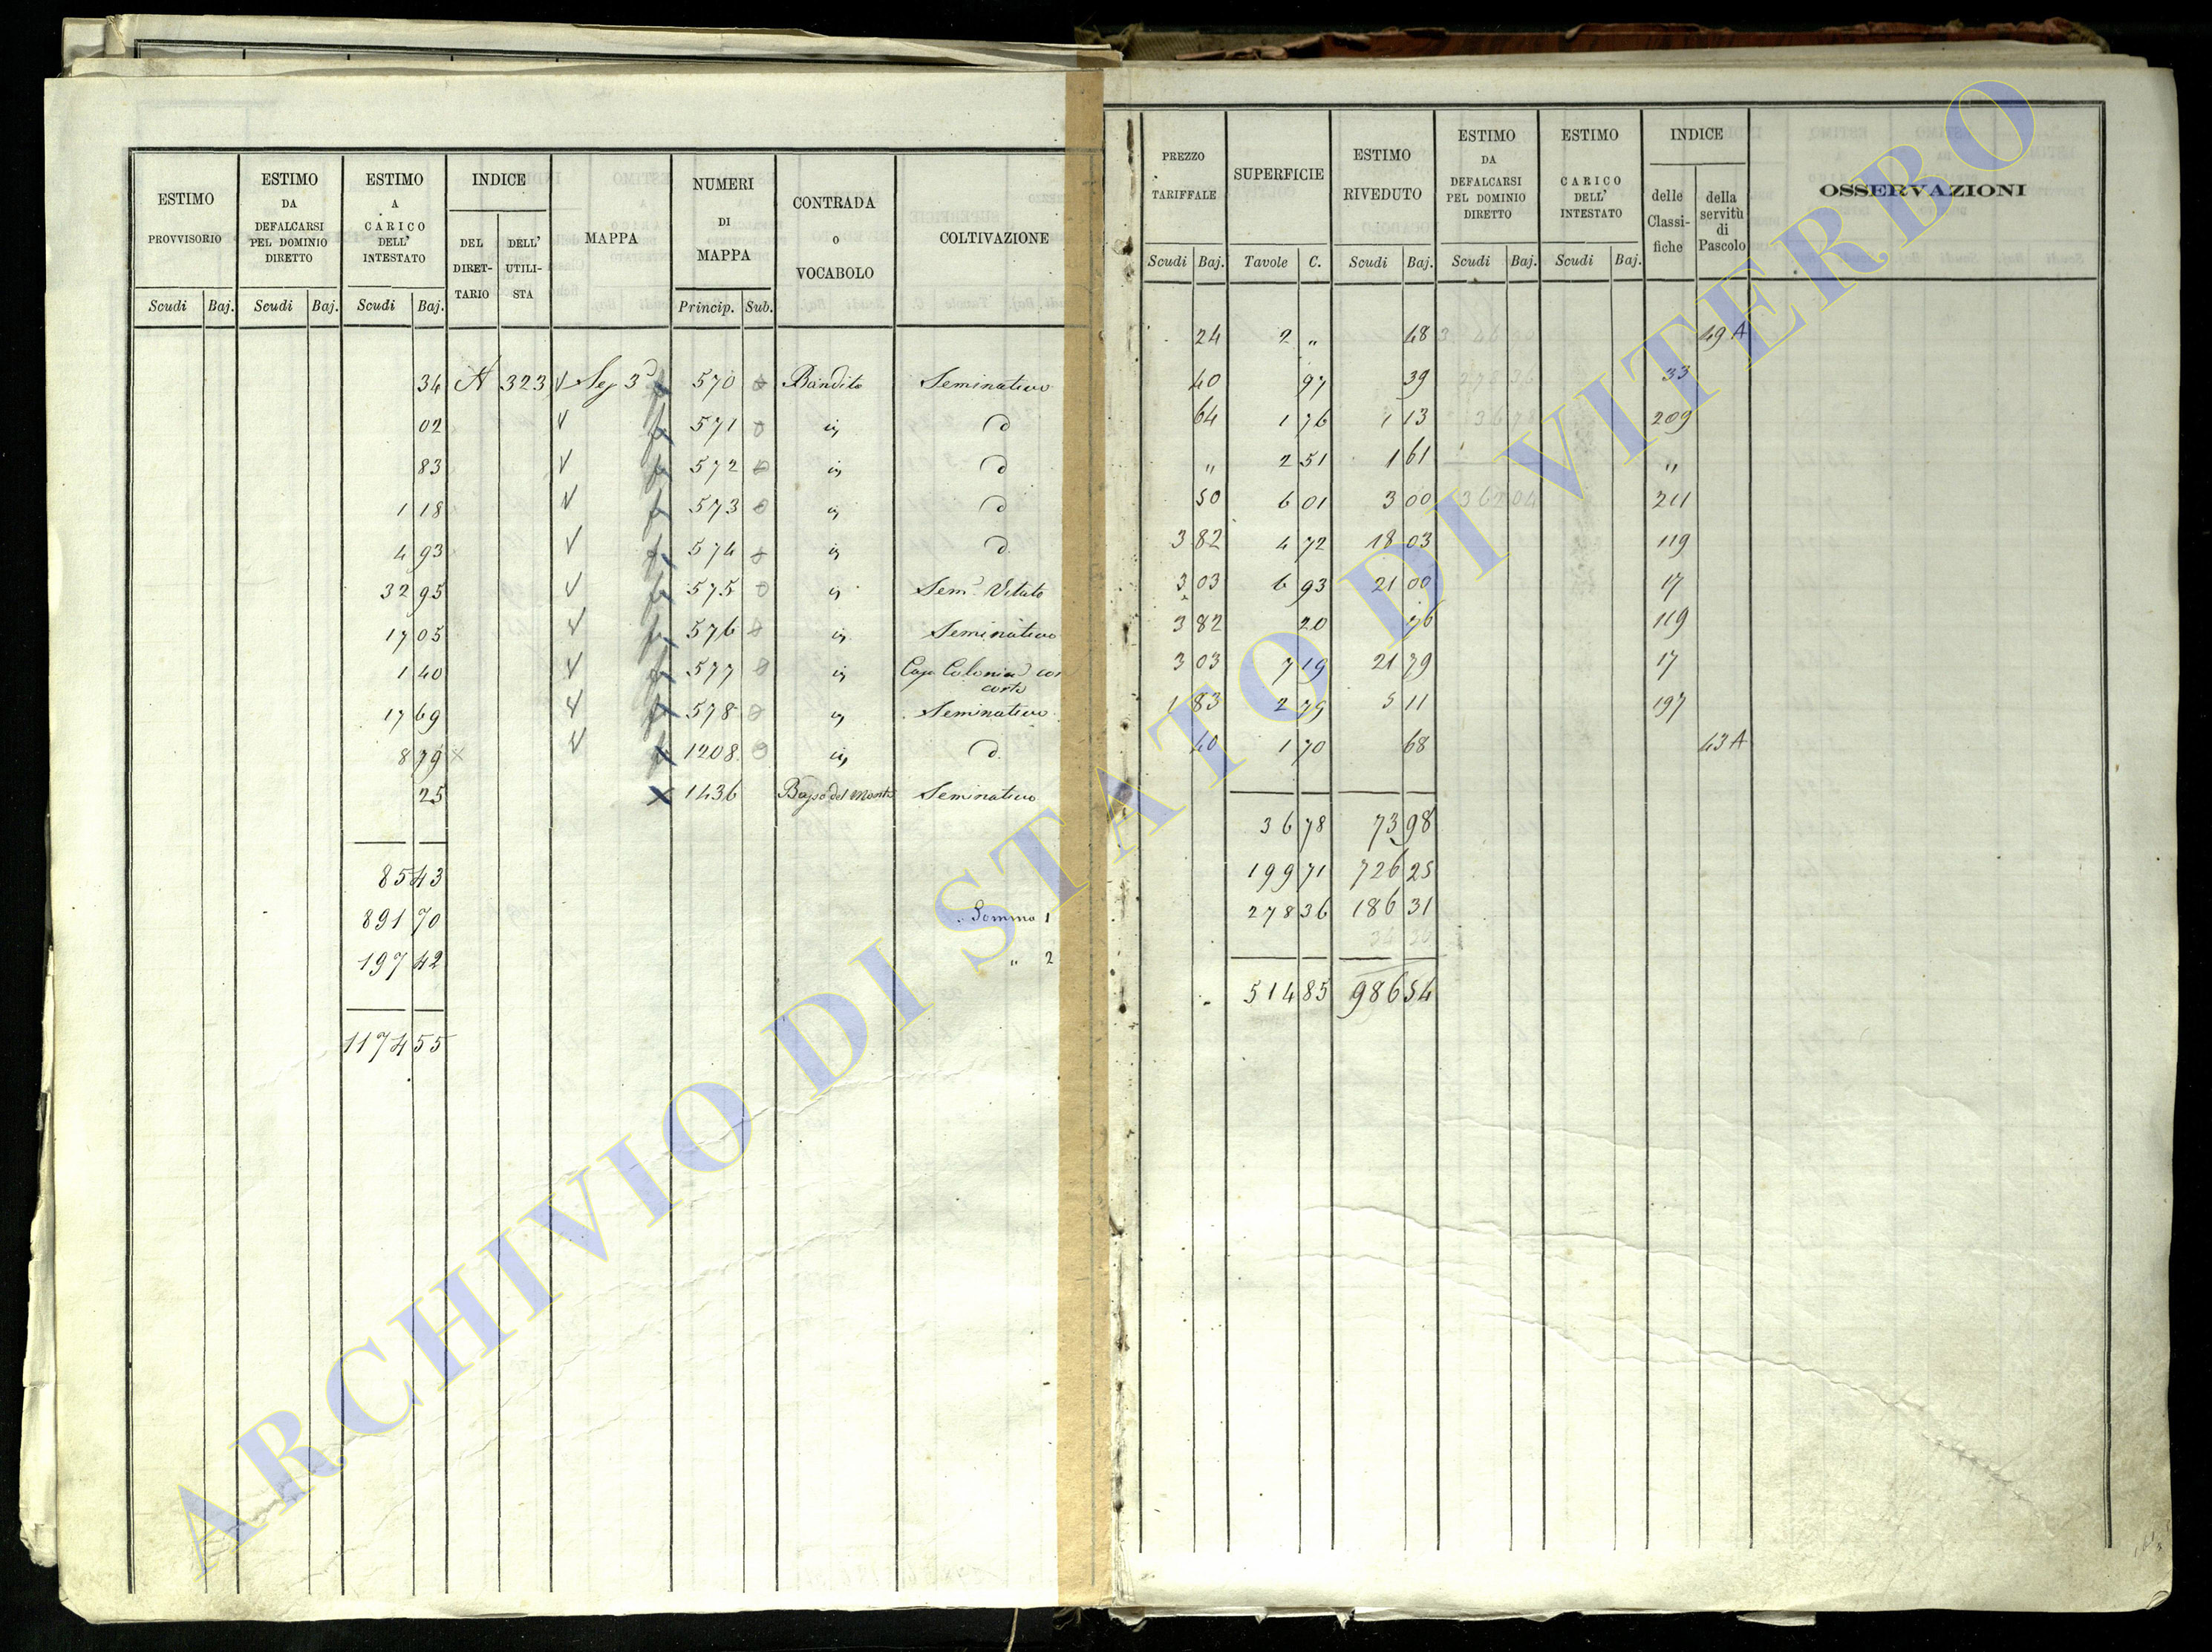 ESTIMO PROVVISORIO Scudi Baj.
ESTIMO DA DEFALCARSI PEL DOMINIO DIRETTO Scudi Baj.
ESTIMO A CARICO DELL' INTESTATO Scudi Baj.
INDICE DEL DIRET- TARIO DELL' UTILI- STA
MAPPA
NUMERI DI MAPPA Princip. Sub.
CONTRADA O VOCABOLO
COLTIVAZIONE
34 A 323 V Sez 3ª 570 Bandita Seminativo
02 V 571 id d
83 V 572 id d
1 18 V 573 id d
4 93 V 574 id d
32 95 V 575 id Semº Vitato
17 05 V 576 id Seminativo
1 40 V 577 id Casa Colonica con corte
17 69 V 578 id Seminativo
8 79 V 1208 id d
25 X 1436 Seminativo
85 43
891 70 Somma 1
197 42 " 2
1174 55
PREZZO TARIFFALE Scudi Baj.
SUPERFICIE Tavole C.
ESTIMO RIVEDUTO Scudi Baj.
ESTIMO DA DEFALCARSI PEL DOMINIO DIRETTO Scudi Baj.
ESTIMO CARICO DELL' INTESTATO Scudi Baj.
INDICE delle Classi- fiche della servitù di Pascolo
OSSERVAZIONI
24 2 " 48 49 A
40 97 39 33
64 1 76 1 13 209
" 2 51 1 61 "
50 6 01 3 00 211
3 82 4 72 18 03 119
3 03 6 93 21 00 17
3 82 20 76 119
3 03 7 19 21 79 17
1 83 2 79 5 11 197
40 1 70 68 43 A
36 78 73 98
199 71 726 25
278 36 186 31
514 85 986 54
ARCHIVIO DI STATO DI VITERBO